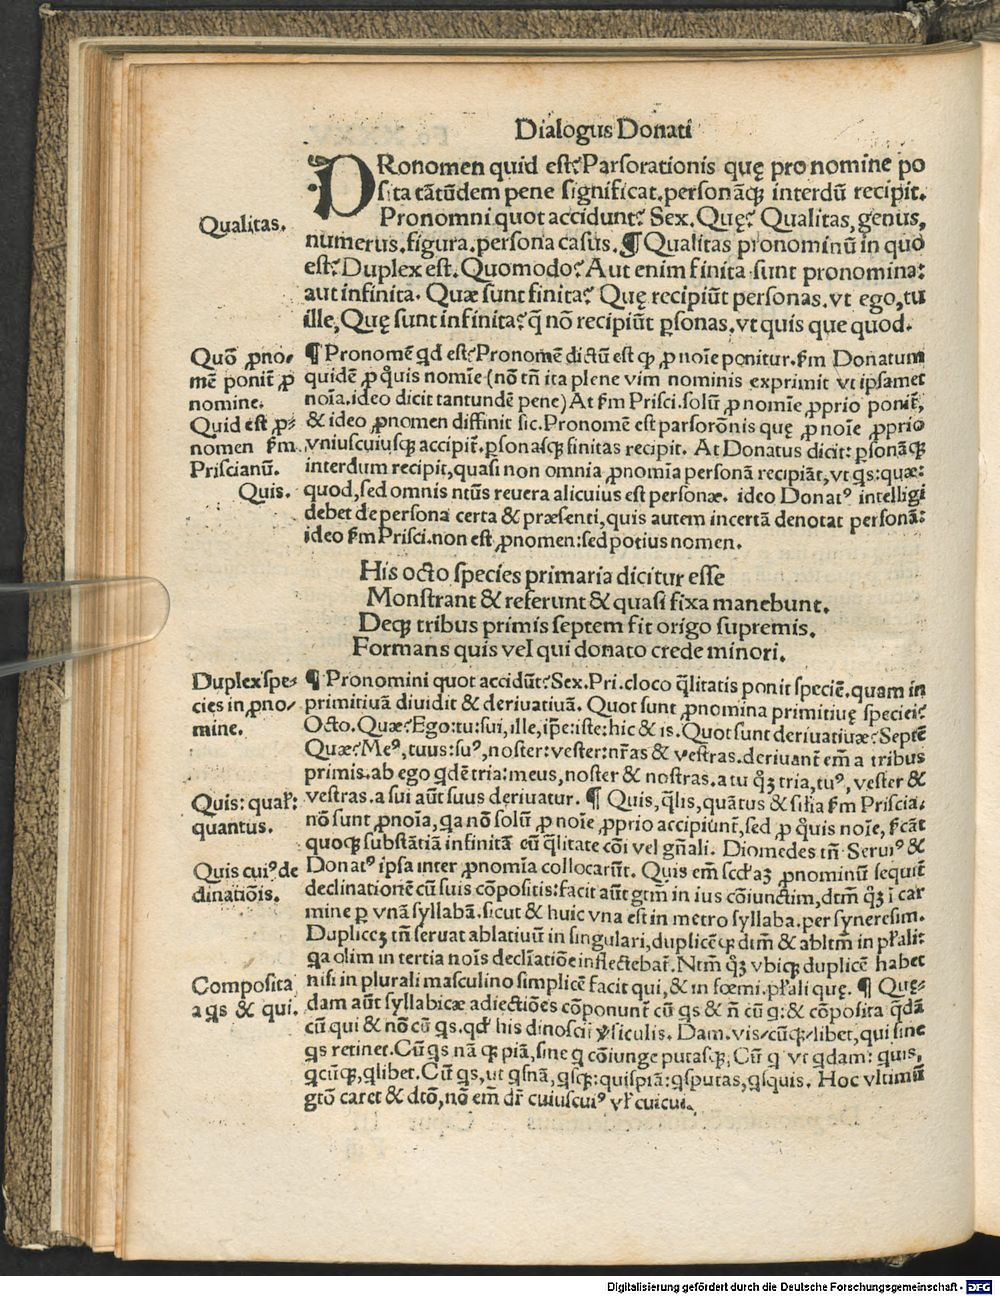 Dialogus Donati
PRonomen quid est? Parsorationis quę pro nomine po
sita tātūdem pene significat. personāqȝ interdū recipit.
Pronomni quot accidunt? Sex. Quę? Qualitas, genus,
Qualitas.
numerus. figura. persona casus. ¶ Qualitas pronominū in quo
est? Duplex est. Quomodo? Aut enim finita sunt pronomina:
aut infinita. Quæ sunt finita? Quę recipiūt personas. vt ego, tu
ille, Quę sunt infinita? q̄ nō recipiūt ꝑsonas. vt quis que quod.
Quō ꝓno-
mē ponit̄ ꝓ
nomine.
Quid est ꝓ-
nomen ẜm
Priscianū.
Quis.
¶ Pronomē qd est? Pronomē dictū est qȝ ꝓ noīe ponitur. ẜm Donatum
quidē ꝓ q̊uis nomīe (nō tñ ita plene vim nominis exprimit vt ipsamet
noīa. ideo dicit tantundē pene) At ẜm Prisci. solū ꝓ nomīe ꝓprio ponit̄,
& ideo ꝓnomen diffinit sic. Pronomē est parsorōnis quę ꝓ noīe ꝓprio
vniuscuiusqȝ accipit̄. ꝑsonasqȝ finitas recipit. At Donatus dicit: ꝑsonāqȝ
interdum recipit, quasi non omnia ꝓnomīa personā recipiāt, vt qs: quæ:
quod, sed omnis ntūs revera alicuius est personæ. ideo Donatꝰ intelligi
debet de persona certa & præsenti, quis autem incertā denotat personā:
ideo ẜm Prisci. non est ꝓnomen: sed potius nomen.
His octo species primaria dicitur esse
Monstrant & referunt & quasi fixa manebunt.
Deqȝ tribus primis septem fit origo supremis.
Formans quis vel qui donato crede minori.
Duplex spe-
cies in ꝓno-
mine.
¶ Pronomini quot accidūt? Sex. Pri. cloco q̄litatis ponit speciē. quam in
primitiuā diuidit & deriuatiuā. Quot sunt ꝓnomina primitiuę speciei?
Octo. Quæ? Ego: tu: sui, ille, ip̄e: iste: hic & is. Quot sunt deriuatiuæ? Septē
Quæ? Meꝰ, tuus: suꝰ, noster: vester: nr̄as & vestras. deriuant em̄ a tribus
primis. ab ego qdē tria: meus, noster & nostras. a tu q̊ȝ tria, tuꝰ, vester &
vestras. a sui aūt suus deriuatur. ¶ Quis, q̄lis, quātus & sīlia ẜm Priscia.
Quis: qual̄:
quantus.
nō sunt ꝓnoīa, qa nō solū ꝓ noīe ꝓprio accipiunt̄, sed ꝓ q̊uis noīe, ẜcāt
quoqȝ substātiā infinitā cū q̄litate cōi vel gñali. Diomedes tñ Seruiꝰ &
Quis cuiꝰ de
clinatiōis.
Donatꝰ ipsa inter ꝓnomīa collocarūt. Quis em̄ scd̄aȝ ꝓnominū sequit̄
declinationē cū suis cōpositis: facit aūt gtm̄ in ius cōiunctim, dtm̄ q̊ȝ i car
mine ꝑ vnā syllabā. sicut & huic vna est in metro syllaba. per syneresim.
Dupliceȝ tñ seruat ablatiuū in singulari, duplicēqȝ dtm̄ & abltm̄ in pl̄ali:
qa olim in tertia noīs decl̄iatiōe inflectebat̄. Ntm̄ q̊ȝ vbiqȝ duplicē habet
Composita
a qs & qui.
nisi in plurali masculino simplicē facit qui, & in fœmi. pl̄ali quę. ¶ Quę-
dam aūt syllabicæ adiectiōes cōponunt̄ cū qs & ñ cū q: & cōposita q̄dā
cū qui & nō cū qs. qd̄ his dinoscit̄ v̓siculis. Dam. vis/cūqȝ/libet, qui sine
qs retinet. Cū qs nā qȝ piā, sine q cōiunge putasqȝ, Cū q vt qdam: quis,
qcūqȝ, qlibet. Cū qs, ut qsnā, qsqȝ: quispiā: qsputas, qsquis. Hoc vltimū
gtō caret & dtō, nō em̄ dr̄ cuiuscuiꝰ vl̄ cuicui.
Digitalisierung gefördert durch die Deutsche Forschungsgemeinschaft - DFG